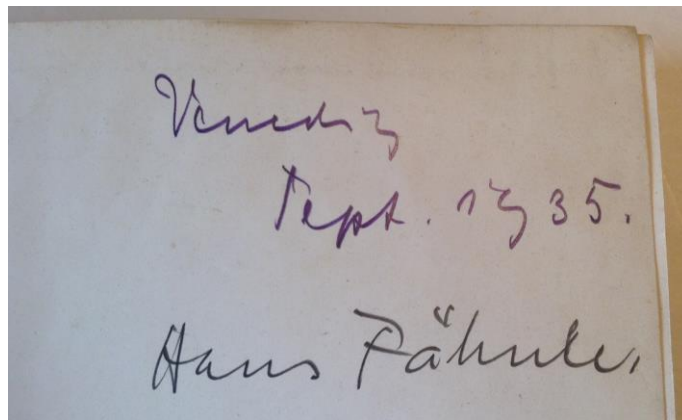 Venedig
Sept. 1935.
Hans Fähnle.